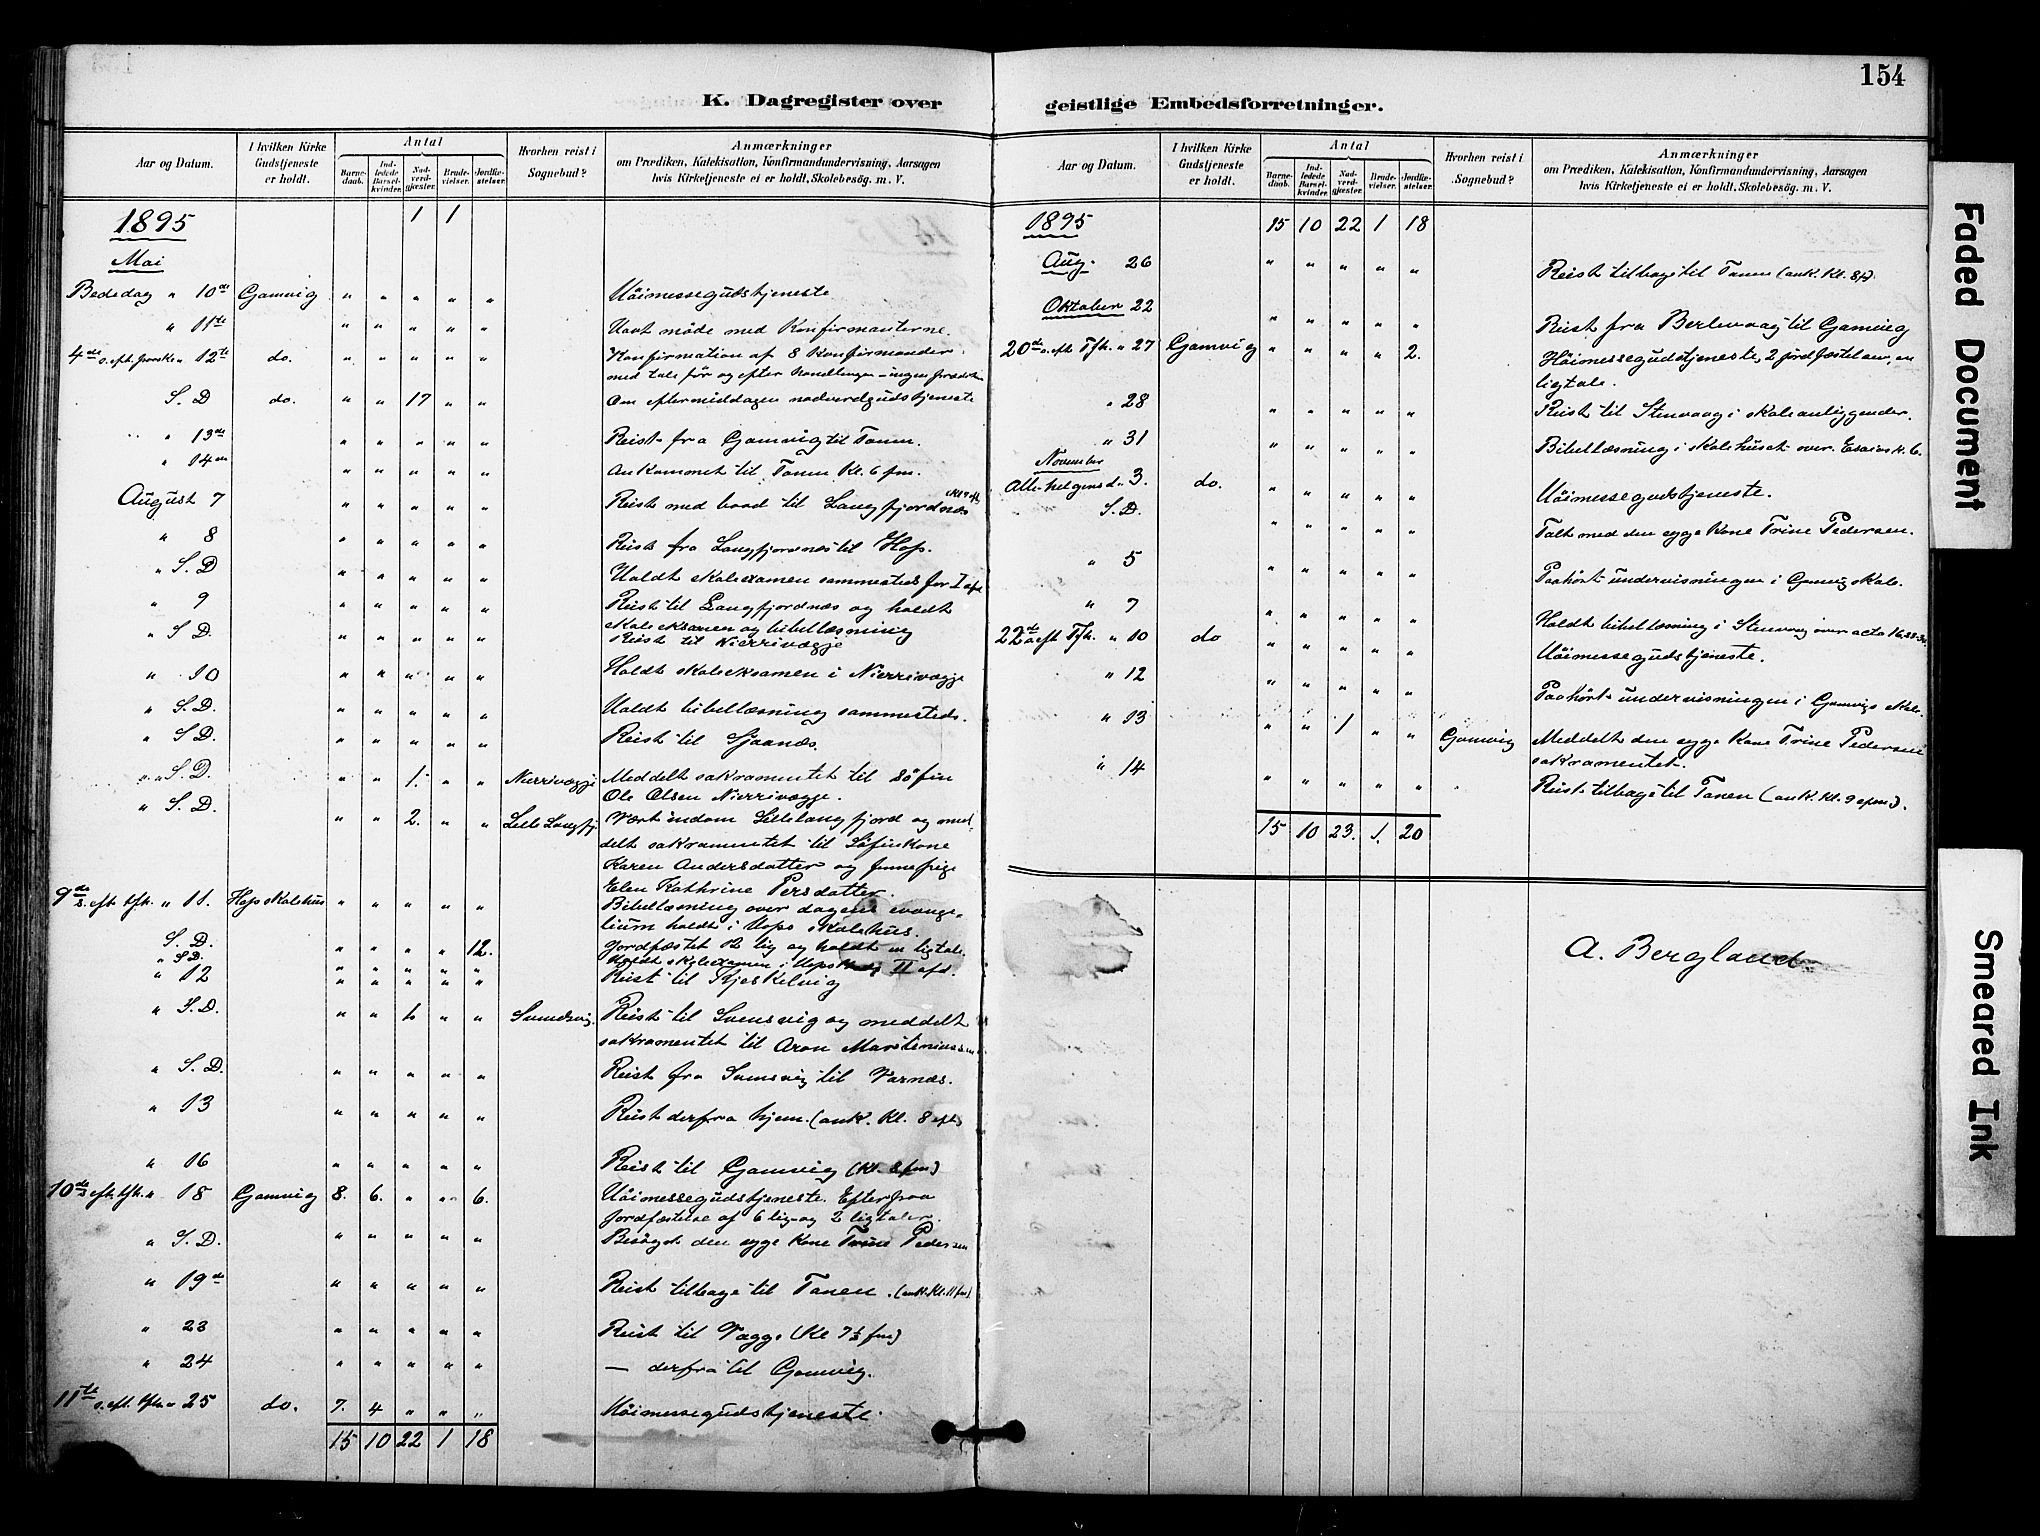 154
K. Dagregister over geistlige Embedsforretninger.
Aar og Datum.
I hvilken Kirke Gudstjeneste er holdt.
Antal
Barnedaab.
Indledede Barselkvinder.
Nadverdgjæster.
Brudevielser.
Jordfæstelser.
Hvorhen reist i Sognebud?
Anmærkninger
om Prædiken, Katekisation, Konfirmandundervisning, Aarsagen
hvis Kirketjeneste ei er holdt, Skolebesøg. m. V.
1895 1 1
Mai
Bededag " 10de Gamvig " " " " " Høimessegudstjeneste
" 11te " " " " " Havt møde med Konfirmanterne.
4de s. eft. paaske " 12te do. " " " " " Konfirmation af 8 Konfirmander
med tale før og efter handlingen – ingen prædiken
S. D do. " " 17 " " Om eftermiddagen nadverdgudstjeneste
" 13de " " " " " Reist fra Gamvig til Tanen.
" 14de " " " " " Ankommet til Tanen Kl. 6 fm.
August 7 " " " " " Reist med baad til Langfjordnæs
" 8 " " " " " Reist fra Langfjordnæs til Hop.
" S. D " " " " " Holdt skoleexamen sammesteds for I afd
" 9 " " " " " Reist til Langfjordnæs og holdt
skoleeksamen og bibellæsning
" S. D. " " " " " Reist til Nierrivægje
" 10 " " " " " Holdt skoleeksamen i Nierrivægje
" S. D. " " " " " Holdt bibellæsning sammesteds.
" S. D. " " " " " Reist til Sjaanæs.
" S. D. " " 1. " " Nierrivægje Meddelt sakramentet til søfin
Ole Olsen Nierrivægge.
" S. D. " " 2. " " Lille Langfj. Vært indom Lillelangfjord og med-
delt sakramentet til Søfinkone
Karen Andersdatter og finnepige
Elen Kathrine Persdatter.
9de s. eft. tfk. " 11. Hops skolehus " " " " " Bibellæsning over dagens evange-
lium holdt i Hops skolehus.
S. D. " " " " 12. Jordfæstet 12 lig og holdt en ligtale.
" S. D. " " " " " Holdt skoleexamen i Hops II afd.
" 12 " " " " " Reist til Kjeskelvig
" S. D. " " 1. " " Svendsvig. Reist til Svensvig og meddelt
sakramentet til Aron
" S. D. " " " " " Reist fra Svensvig til Varnæs.
" 13 " " " " " Reist derfra hjem. (ank. Kl. 8 eft)
" 16 " " " " " Reist til Gamvig (Kl. 8 fm)
10de s. eft. tfk. " 18 Gamvig 8. 6. " " 6. Høimessegudstjeneste. Efterpaa
Jordfæstelse af 6 lig og 2 ligtaler.
" S. D. " " " " " Besøgt den syge Kone Trine Pedersen
" 19de " " " " " Reist tilbage til Tanen. (ank. Kl. 11 fm)
" 23 " " " " " Reist til Vagge (Kl 7½ fm)
" 24 " " " " " — derfra til Gamvig.
11te s. eft. tfk. " 25 do. 7. 4 " " " Høimessegudstjeneste.
15 10 22 1 18
Aar og Datum.
I hvilken Kirke Gudstjeneste er holdt.
Antal
Barnedaab.
Indledede Barselkvinder.
Nadverdgjæster.
Brudevielser.
Jordfæstelser.
Hvorhen reist i Sognebud?
Anmærkninger
om Prædiken, Katekisation, Konfirmandundervisning, Aarsagen
hvis Kirketjeneste ei er holdt, Skolebesøg. m. V.
1895 15 10 22 1 18
Aug. 26 " " " " " Reist tilbage til Tanen (ank. Kl. 8f)
Oktober 22 " " " " " Reist fra Berlevaag til Gamvig
20de s. eft Tfk. " 27 Gamvig " " " " 2. Høimessegudstjeneste, 2 jordfæstelser, en
ligtale.
" 28 " " " " " Reist til Stenvaag i skoleanliggender.
" 31 " " " " " Bibellæsning i skolehuset over Esaias k. 6.
November
Allehelgensd. 3. do. " " " " " Høimessegudstjeneste.
S. D. " " " " " Talt med den syge Kone Trine Pedersen.
" 5 " " " " " Paahørt undervisningen i Gamvig skole.
" 7 " " " " " Holdt bibellæsning i Stenvaag over acta 16
22de s. eft Tfk. " 10 do " " " " " Høimessegudstjeneste.
" 12 " " " " " Paahørt undervisningen i Gamvigs skole.
" 13 " " 1 " " Gamvig Meddelt den syge Kone Trine Pedersen
sakramentet.
" 14 " " " " " Reist tilbage til Tanen (ank. kl. 9 efm).
15 10 23. 1. 20
A. Bergland
Faded Document
Smeared Ink